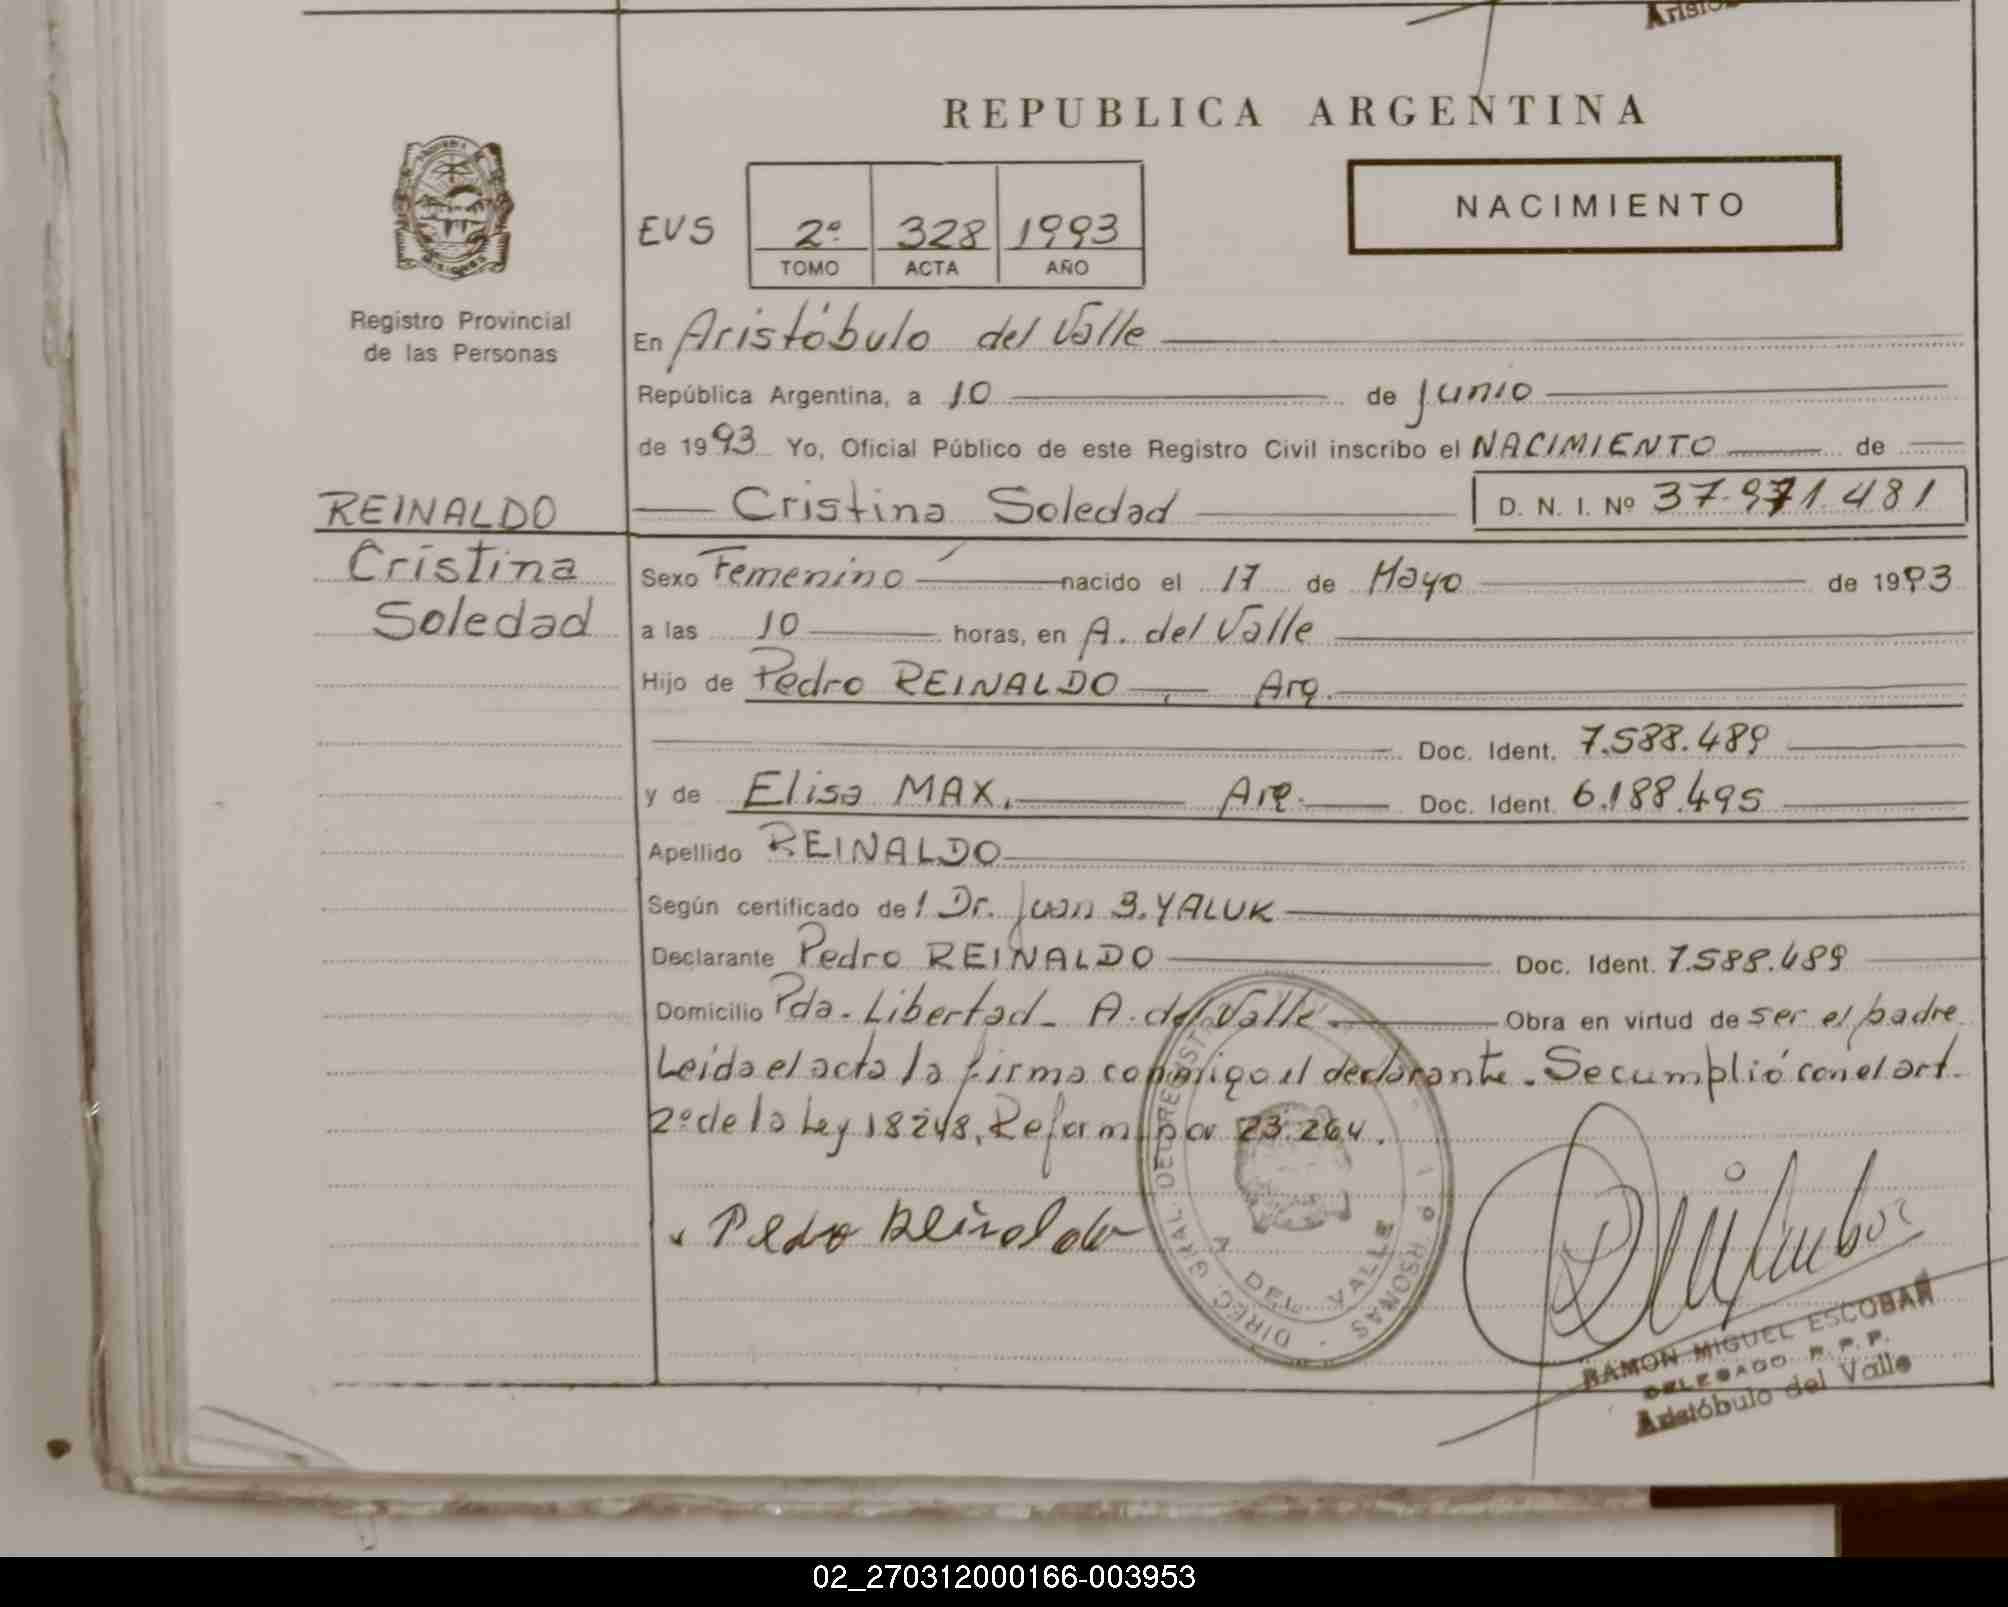 Aristó
REPUBLICA ARGENTINA
NACIMIENTO
EVS 2º 328 1993
TOMO ACTA AÑO
Registro Provincial
de las Personas
En Aristóbulo del Valle
República Argentina, a 10 de Junio
de 1993 Yo, Oficial Público de este Registro Civil inscribo el NACIMIENTO de
REINALDO
Cristina Soledad D. N. I. Nº 37.971.481
Cristina
Soledad
Sexo Femenino nacido el 17 de Mayo de 1993
a las 10 horas, en A. del Valle
Hijo de Pedro REINALDO Arg.
Doc. Ident. 7.588.489
y de Elisa MAX. Arg. Doc. Ident. 6.188.495
Apellido REINALDO
Según certificado del Dr. Juan B. YALUK
Declarante Pedro REINALDO Doc. Ident. 7.588.489
Domicilio Pda. Libertad - A. del Valle. Obra en virtud de ser el padre
Leida el acta la firma conmigo el declarante. Se cumplió con el art.
2º de la Ley 18248, Reform. por 23.264.
Pedro Reinaldo
DIREC. GRAL. DEL REGISTR
A DEL VALLE
RAMON MIGUEL ESCOBAR
DELEGADO R. P. P.
Aristóbulo del Valle
02_270312000166-003953